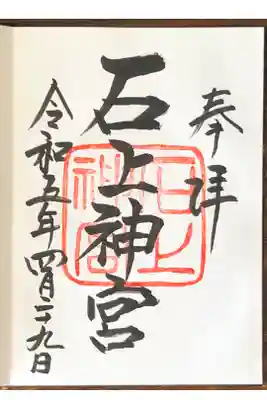 奉拝
石上神宮
石上神宮
令和五年四月二十九日